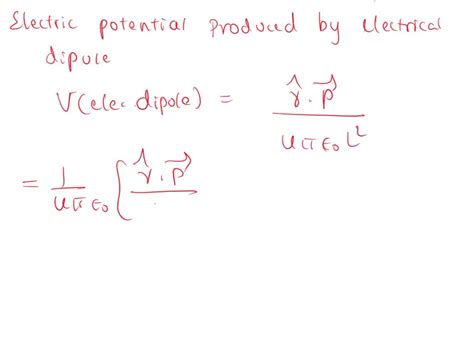 Electric potential produced by electrical
dipole
V(elec dipole) = r̂ · p⃗ / 4πε₀ r²
= 1 / 4πε₀ ( r̂ · p⃗ /